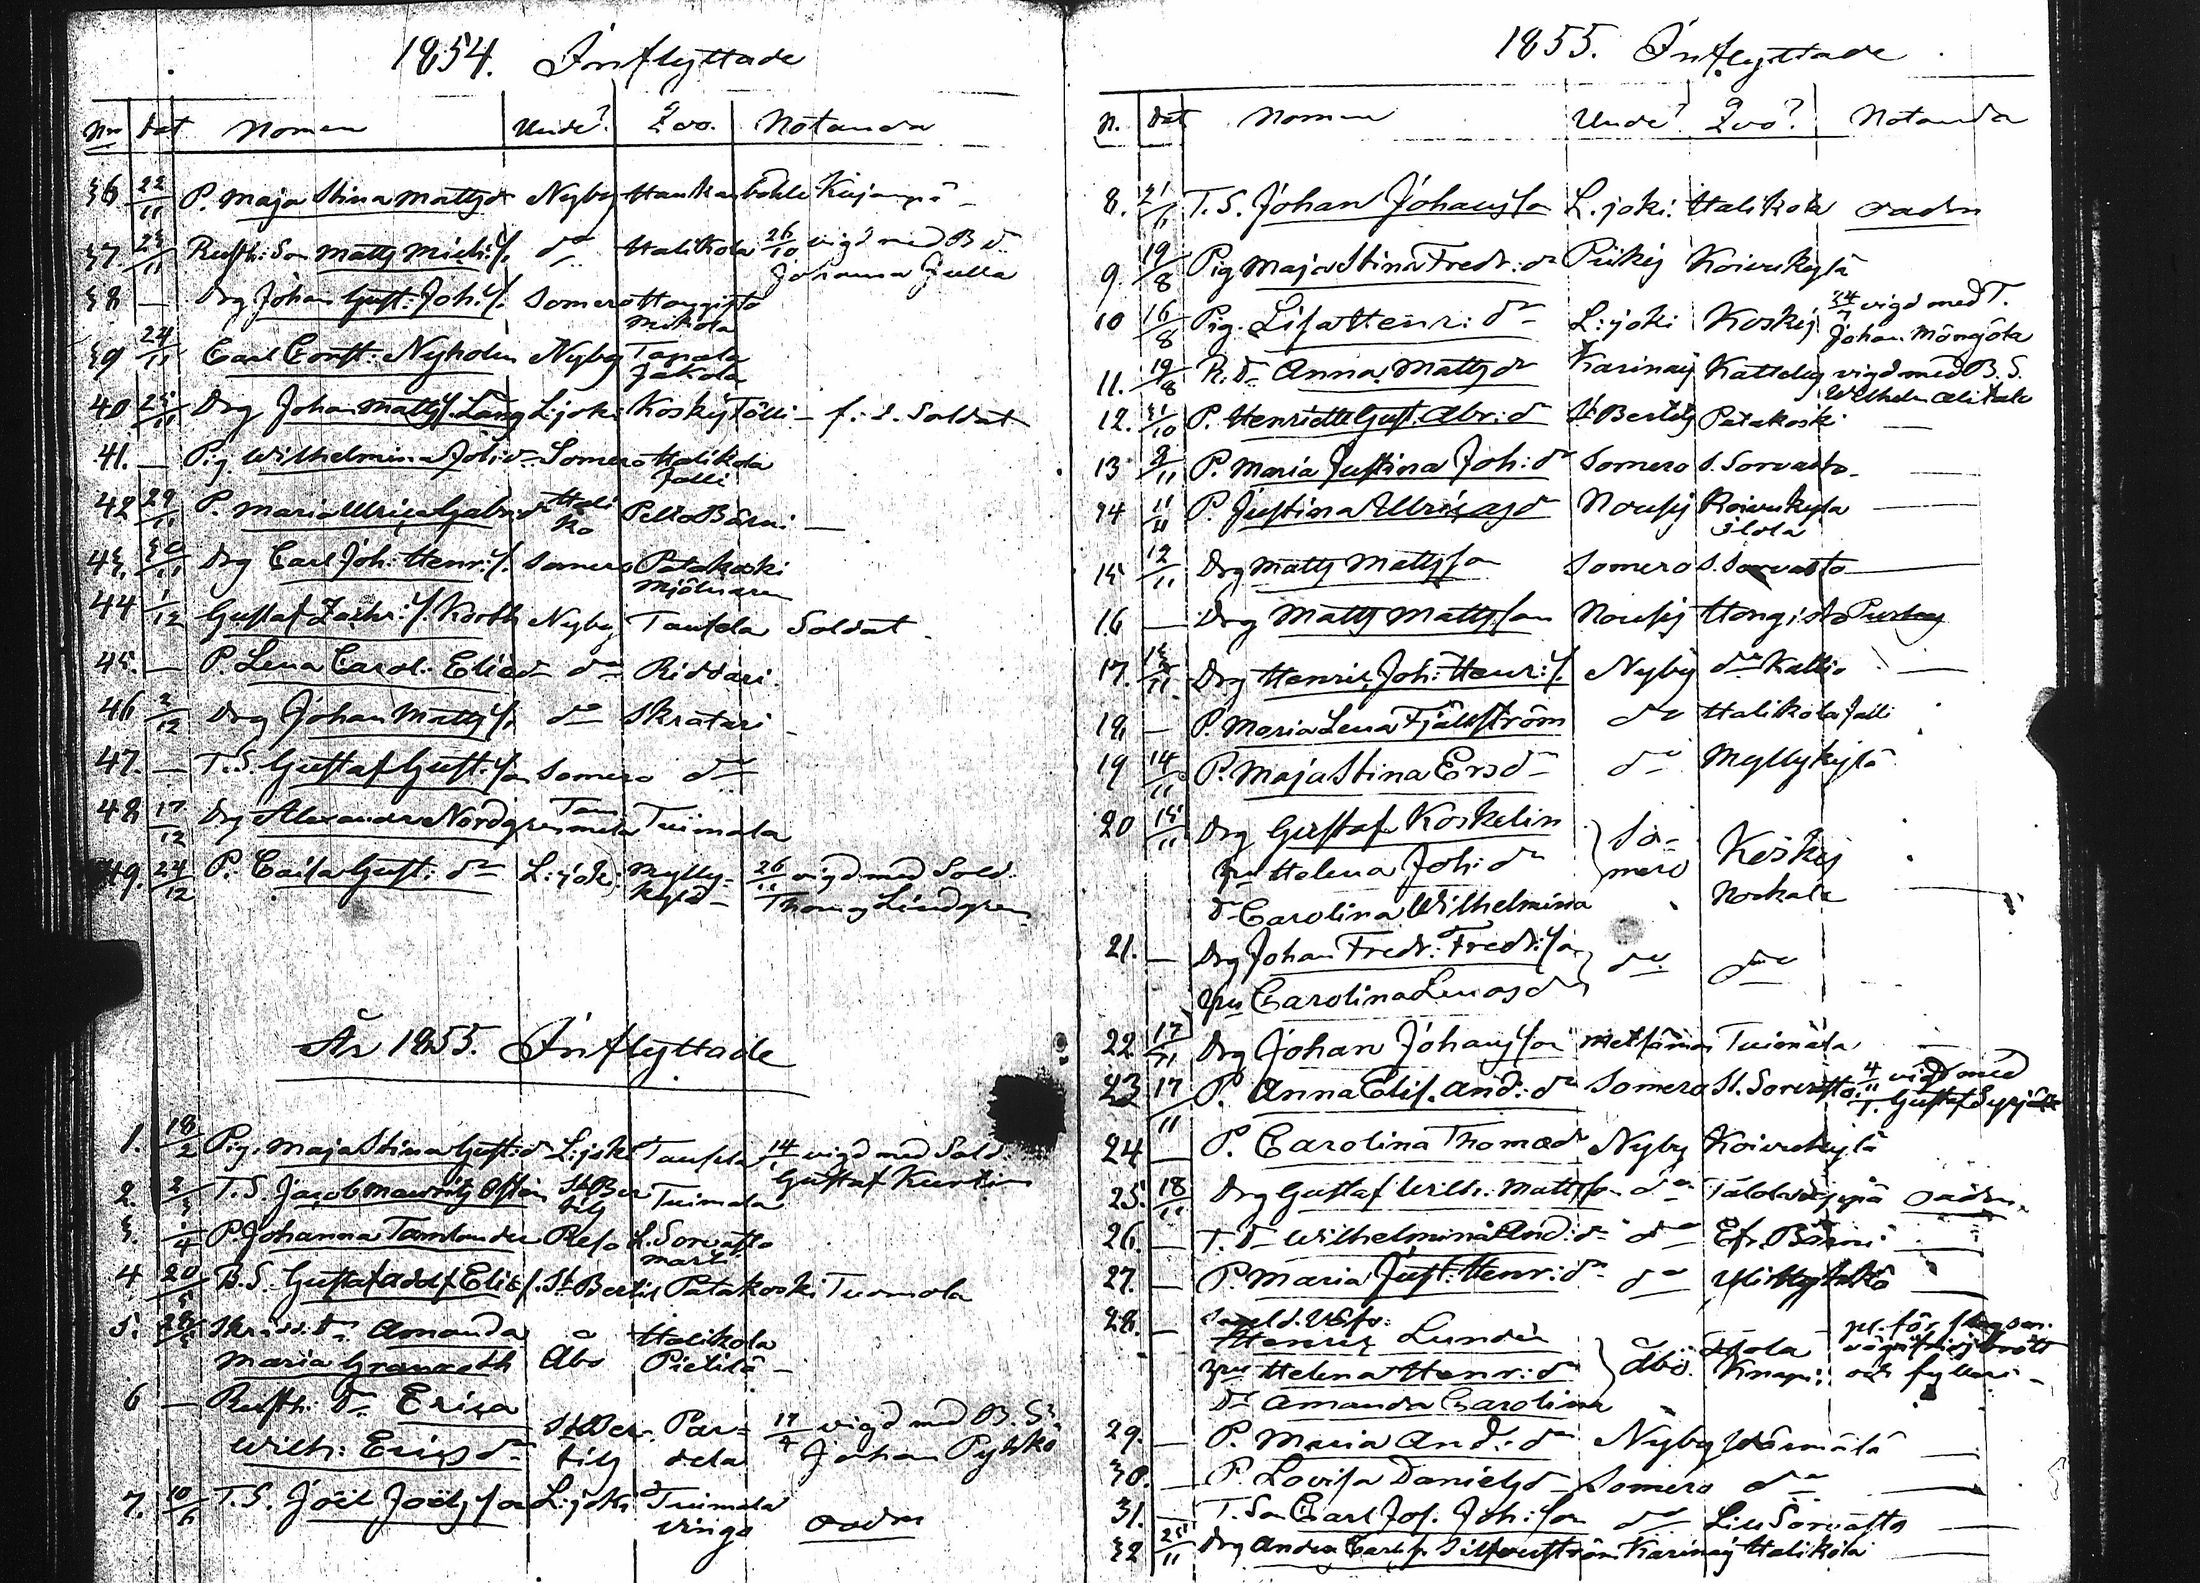 1854. Inflyttade
Nro Dat Nomen Unde? Qvo. Notanda
36 22/11 P. Maja Stina Mattsdr Nyby Haukanböhle Kujanpä –
37. 23/11 Rusth: Son Matts Mich: s. do Halikola 26/10 vigd med B. d.
Johanna Julia
38 — Drg Johan Gust: Joh: s. Somero Hongisto
Mikola
39 24/11 Carl Const: Nyholm Nyby Tapala
Jakola
40 25/11 Drg Johan Matts s. Lång L:joki Koskis Tölli – f. d. Soldat
41. — Pig Wilhelmina Joh: dr Somero Halikola
Jalli
42 29/11 P. Maria Ulrica Gabr: dr Hali
ko Pello Bärni –
43. 30/11 Drg Carl Joh: Henr: s. Somero Patakoski
Mjölnaren
44 1/12 Gustaf Zachr: s. Korth Nyby Taufsla Soldat
45. — P. Lena Carol. Eliedr do Riddari.
46 2/12 Drg Johan Matts s. do Skrätari
47. — T. S. Gustaf Gust: son Somero do
48 17/12 Drg Alexander Nordgren Tam
mela Tuimala
49. 24/12 P. Caisa Gust: dr L:joki Mylly-
kylä – 26/12 vigd med Sold.
Thomas Lindgren
År 1855. Inflyttade
1. 18/2 Pig. Maja Stina Gust: d L:joki Taufsla 14/ vigd med Sold.
Gustaf Kurtin
2. 2/3 T. S. Jacob Mauritz Ofsian St Ber
tils Tuimala
3. /4 P. Johanna Tamlander Reso L. Sorvasto
Marti
4 20/5 B. S. Gustaf Adolf Elias s. St Bertils Patakoski Tuomola
5. 28/5 Skrädd. dr Amanda
Maria Granroth Åbo Halikola
Pietilä –
6 — Rusth: dr Erica
Wilh: Ericsdr St Ber-
tils Par-
dela 17/7 vigd med B. S.
Johan Pyhkö
7. 10/6 T. S. Joel Joels son L:joki Tuimala
Vingo oadm
1855. Inflyttade
N. Dat Nomen Unde? Qvo? Notanda
8. 21/6 T. S. Johan Johansson L.joki. Halikola oadm
9 19/8 Pig Maja Stina Fredr: dr Pikis Koivukylä
10 16/8 Pig. Lisa Henr: dr L:joki Koskis 24/7 vigd med T.
Johan Möngöla
11. 19/8 R. dr Anna Mattsdr Karinais Kattelus vigd med B. S.
Wilhelm Alitalo
12. 31/10 P. Henriette Gust. Abr: dr St Bertils Patakoski —
13 9/11 P. Maria Justina Joh: dr Somero S. Sorvasto —
14 11/11 P. Justina Ulricasdr Nousis Koivukyla —
Ilola
15 12/11 Drg Matts Mattsson Somero S. Sorvasto —
16 — Drg Matts Mattsson Nousis Hongisto
17. 13/11 Drg Henric Joh: Henr: s. Nyby do Kallio —
19, — P. Maria Lena Fjällström do Halikola Jalli
19 14/11 P. Maja Stina Ersdr do Myllykylä
20 15/11 Drg Gustaf Koskelin So-
mero Koskis
hu Helena Joh: dr
dr Carolina Wilhelmina Norkala
21. — Drg Johan Fredr: Fredr: son do do
hu Carolina Lucasdr
22 17/11 Drg Johan Johansson Metsämä Tuimala —
23 17/11 P. Anna Elis. And: dr Somero St. Sorvasto 4/11 vigd med
T. Gustaf
24 — P. Carolina Thomædr Nyby Koivukylä
25. 18/11 Drg Gustaf Wilh: Mattsson do oadm.
26. — T. dr Wilhelmina And: dr do Efv. Bärni —
27. — P. Maria Just: Henr: dr do —
28. —
Henric Lundén
hu Helena Henr: d Åbo. Isola
Knapi
dr Amanda Carolina
och fylleri –
29. — P. Maria And: dr Nyby Wärmälä —
30. — P. Lovisa Danielsdr Somero do —
31. — T. Son Carl Jos. Joh: son do Lill Sorvasto —
32 25/11 Drg Anders Carl s. Silfverström Karinais Halikola —